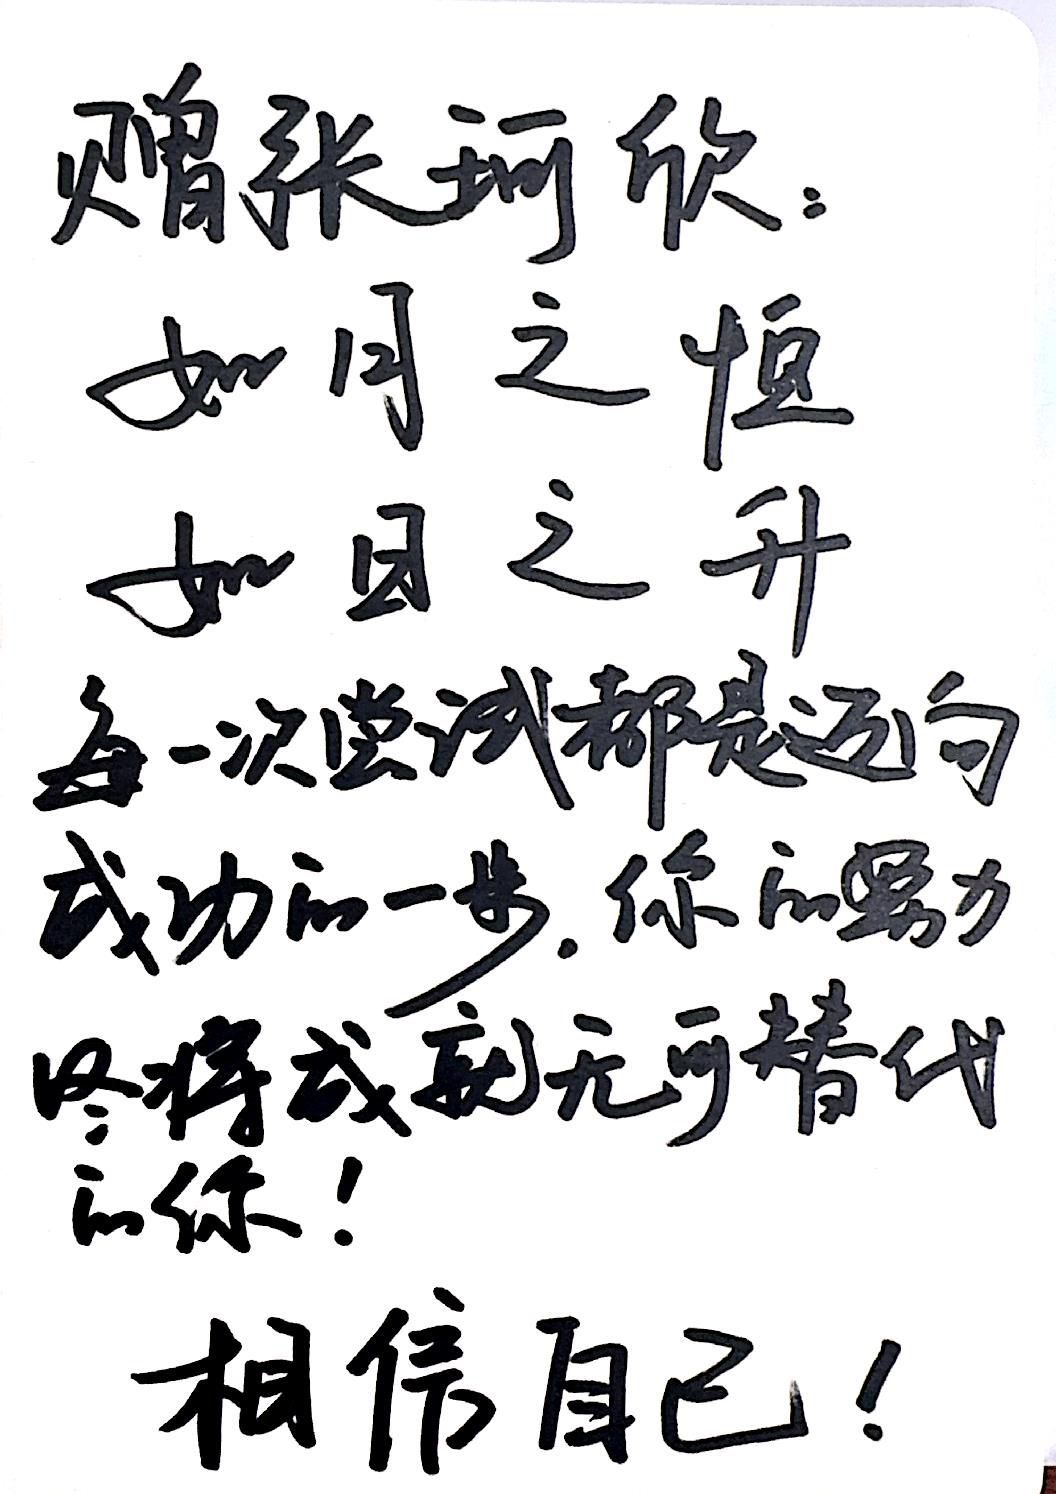 赠张珂欣：
如月之恒
如日之升
每一次尝试都是迈向
成功的一步.你的努力
终将成就无可替代
的你！
相信自己！